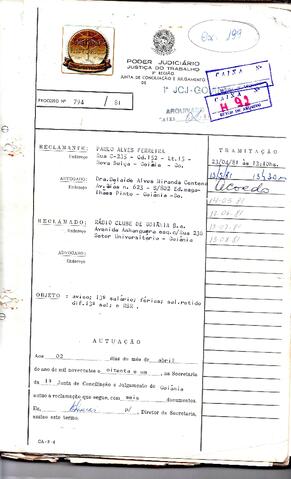 Ex. 199
PODER JUDICIÁRIO
JUSTIÇA DO TRABALHO
REGIÃO
JUNTA DE CONCILIAÇÃO E JULGAMENTO
DE
1ª JCJ-GO
CAIXA
H 92
PROCESSO Nº 794 / 81
RECLAMANTE: PABLO ALVES FERREIRA
Endereço Rua C-215 - Qd.152 - Lt.15 -
Nova Suiça - Goiânia - Go.
ADVOGADO: Dra. Delaíde Alves Miranda Centeno
Endereço nº 623 - S/802 Ed. Maga-
lhães Pinto - Goiânia -Go.
RECLAMADO: RÁDIO CLUBE DE GOIÂNIA S.a.
Endereço Avenida Anhanguera esq.c/Rua 230
Setor Universitário - Goiânia
ADVOGADO
Endereço
OBJETO : aviso; 13º salário; férias; sal.retido
dif.13º sal; e RSR.
TRAMITAÇÃO
23/04/81 às 13:40hs.
Acordo
14.05.81
13.07.81
13.08.81
AUTUAÇÃO
Aos 02 dias do mês de abril
do ano de mil novecentos e oitenta e um , na Secretaria
da 1ª Junta de Conciliação e Julgamento de Goiânia
autuo a reclamação que segue, com mais documentos.
Eu, Diretor de Secretaria,
assino este termo.